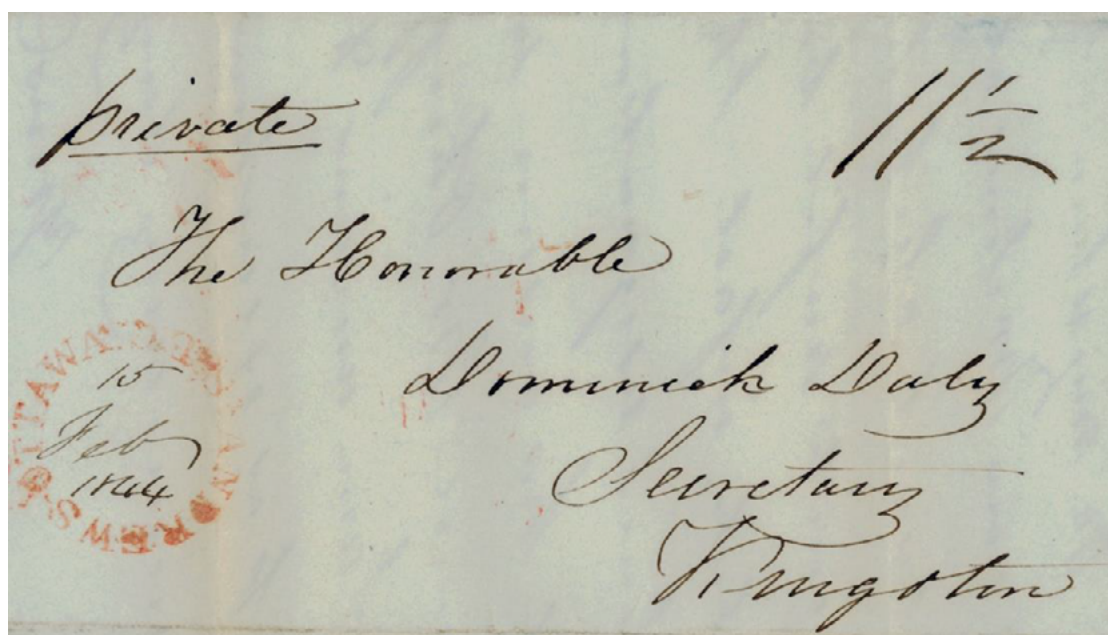 private
11 1/2
The Honorable
Dominick Daly
Secretary
Kingston
ANDREWS OTTAWA
15
Feb
1844